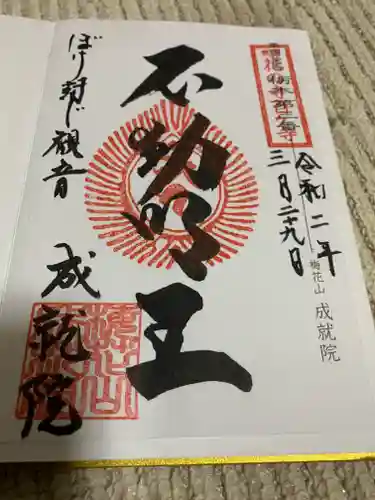 令和二年
三月二十九日
梅花山 成就院
不動明王
ぼけ封じ観音
成就院